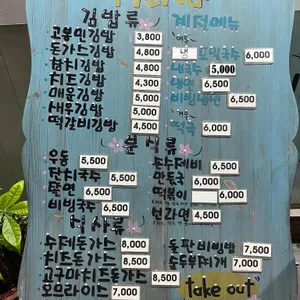 Menu
김밥류
고봉민김밥 3,800
돈가스김밥 4,800
참치김밥 4,800
치즈김밥 4,300
매운김밥 5,000
새우김밥 5,000
떡갈비김밥 4,500
계절메뉴
여름
냉 모밀국수 6,000
냉국수 5,000
냉면 6,500
비빔냉면 6,500
겨울
떡국 6,000
분식류
우동 5,500
잔치국수 5,500
쫄면 6,500
비빔국수 6,500
순두부 6,500
만둣국 6,000
떡볶이 6,000
선라면 4,500
식사류
수제돈가스 8,000
치즈돈가스 8,500
고구마치즈돈가스 8,500
오므라이스 7,000
돌판비빔밥 7,500
순두부찌개 7,000
take out